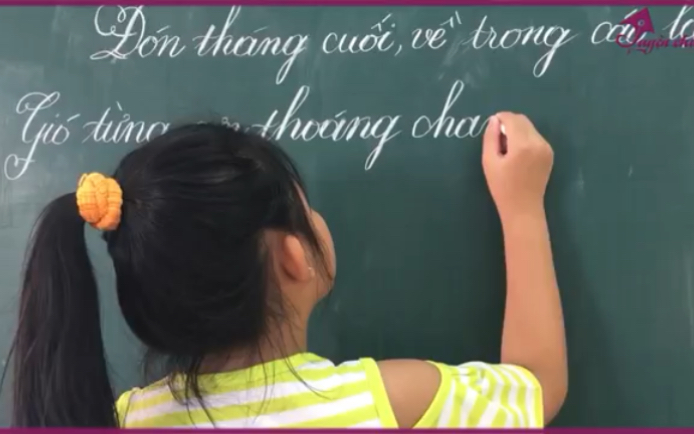 Đón tháng cuối, về trong cái
Gió từng thoáng cha